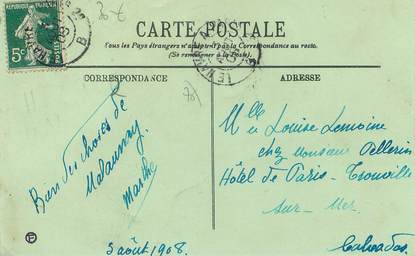 RÉPUBLIQUE FRANÇAISE
5c
CARTE POSTALE
Tous les Pays étrangers n'acceptent pas la Correspondance au recto.
(Se renseigner à la Poste).
CORRESPONDANCE
ADRESSE
Bien des choses de
Malaunay
Marthe
5 août 1908.
Mlle
Louise Lemoine
chez Monsieur Pellerin
Hôtel de Paris - Trouville
sur-Mer
Calvados